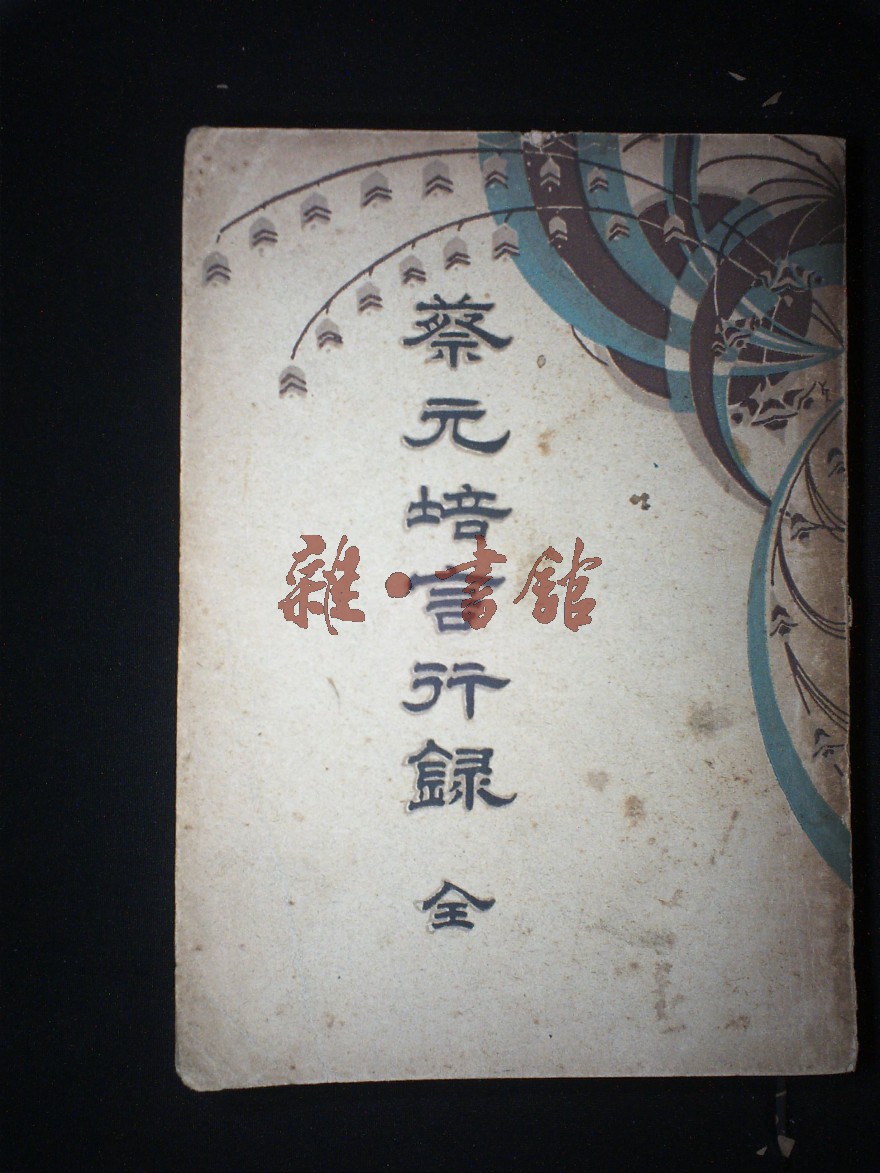 蔡元培言行録 全
雜·書館